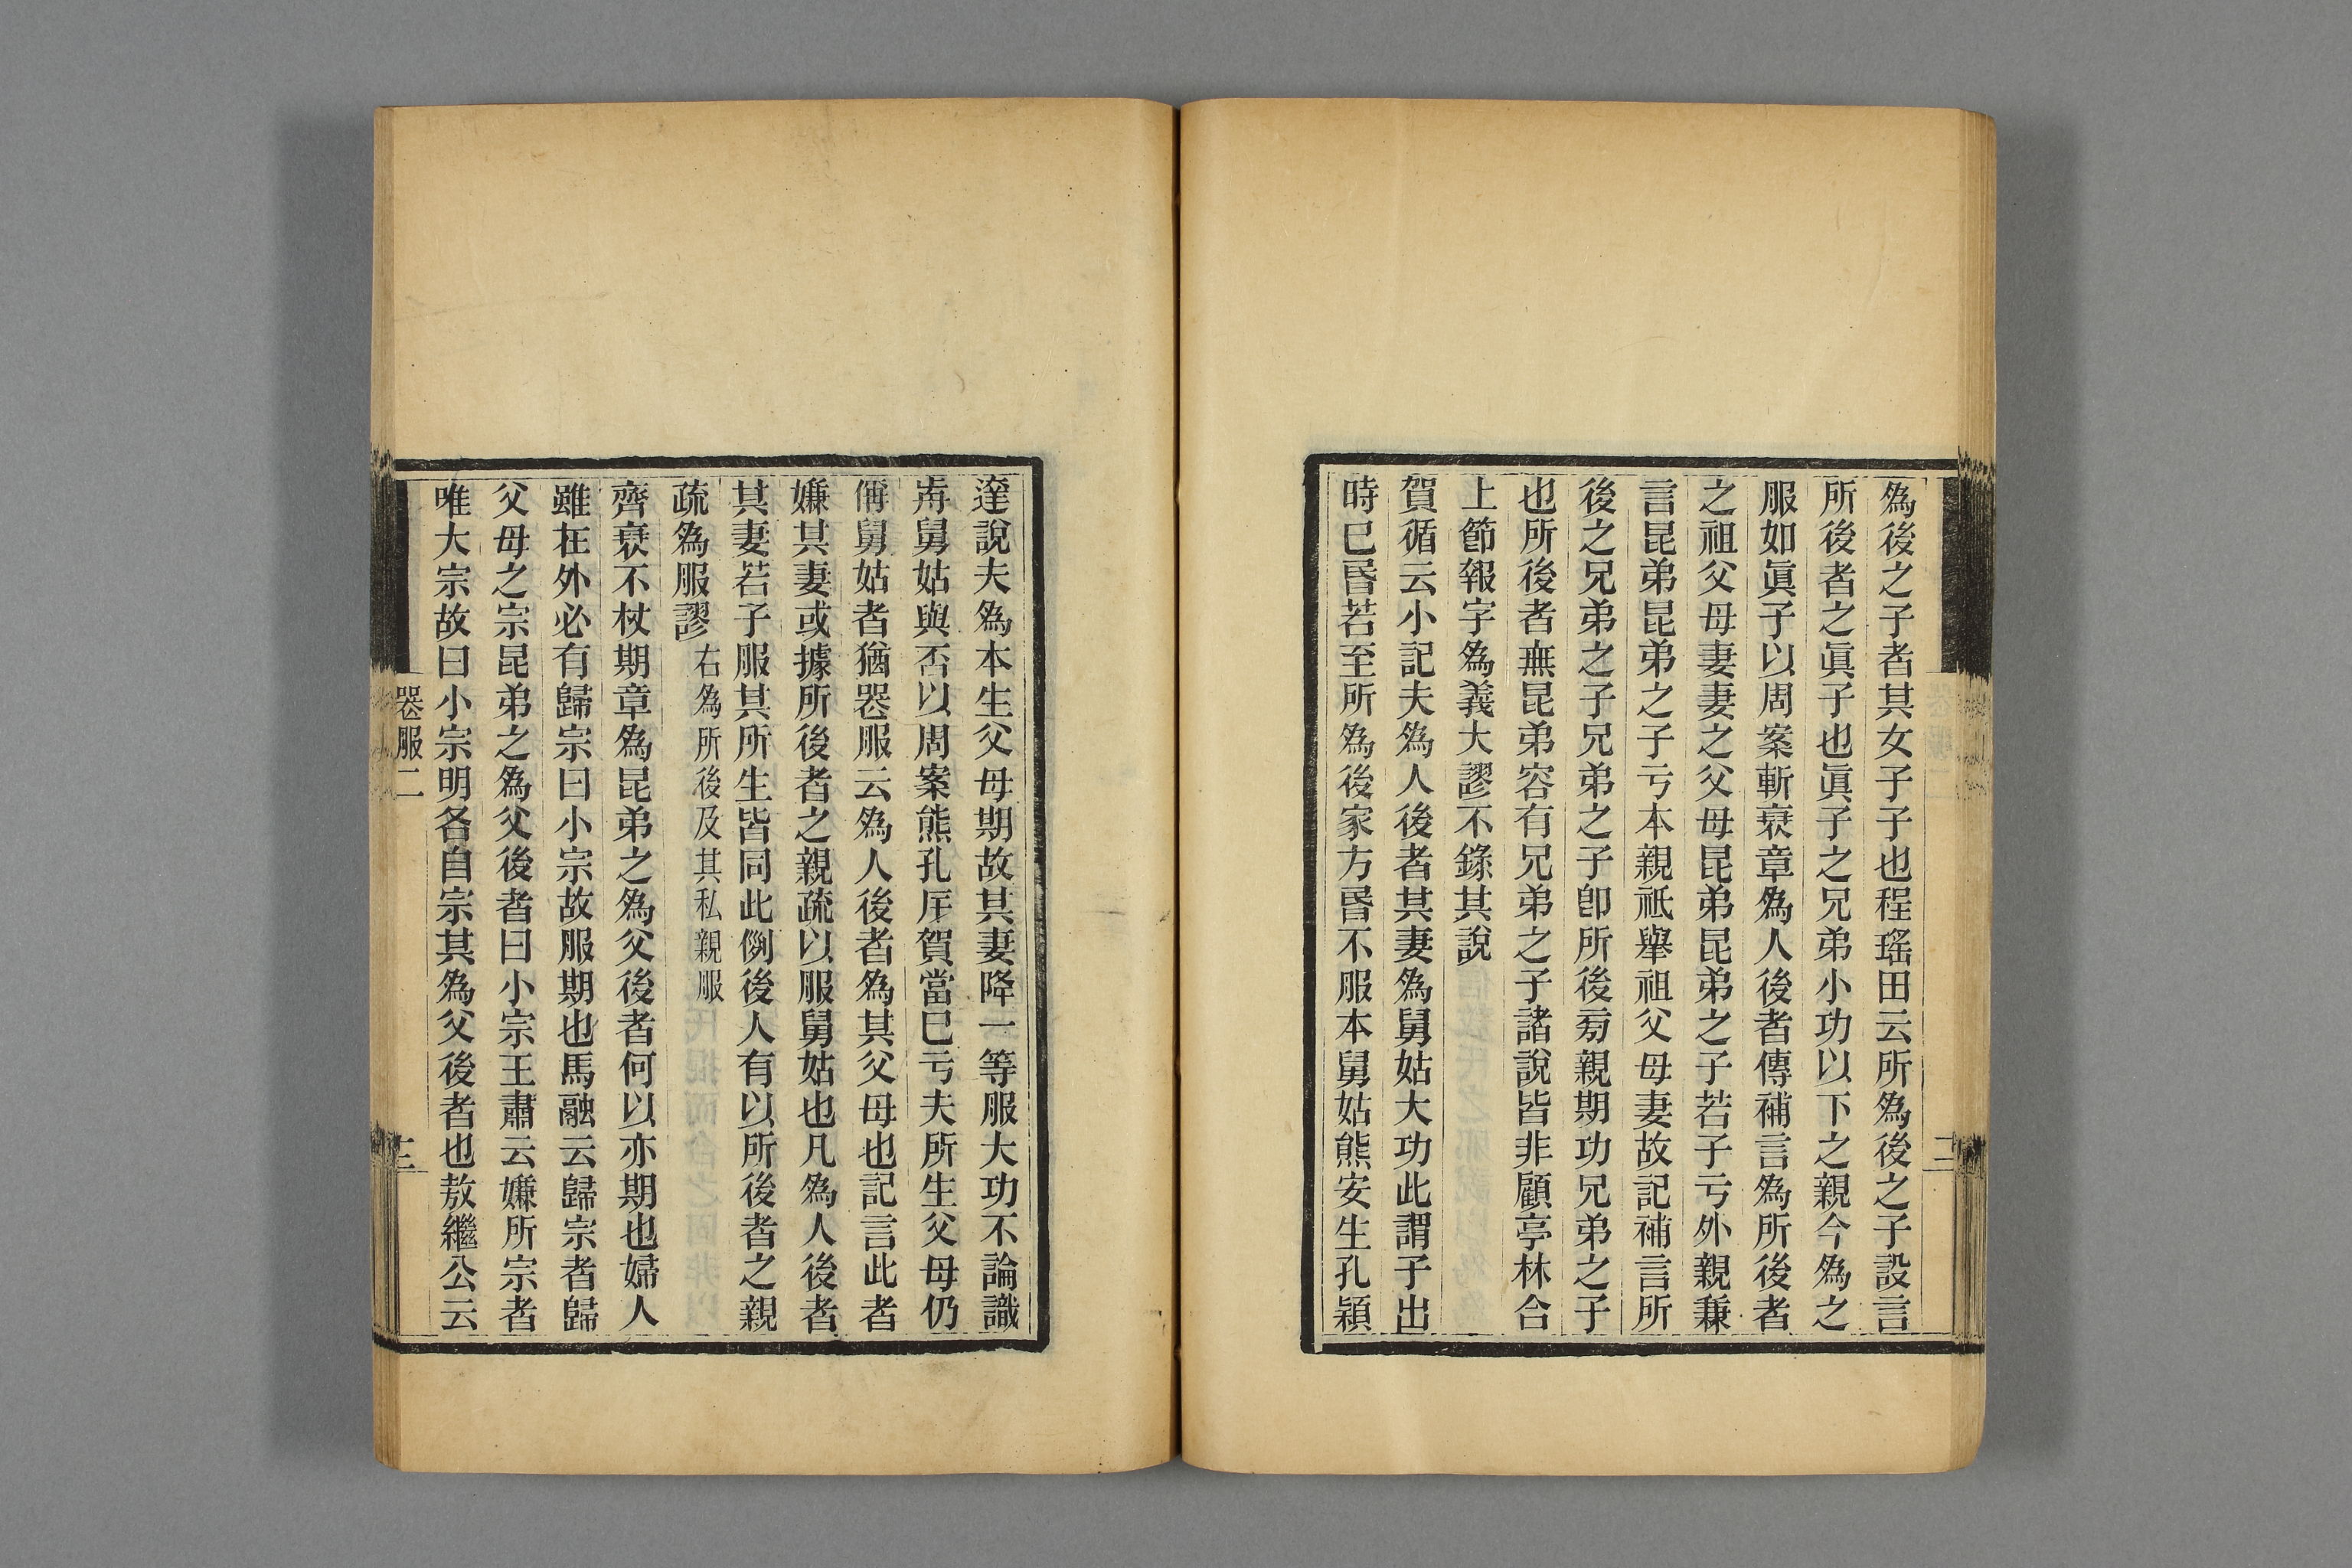 爲後之子者其女子子也程瑤田云所爲後之子設言
所後者之眞子也眞子之兄弟小功以下之親今爲之
服如眞子以周案斬衰章爲人後者傳補言爲所後者
之祖父母妻妻之父母昆弟昆弟之子若子亏外親兼
言昆弟昆弟之子亏本親祗舉祖父母妻故記補言所
後之兄弟之子兄弟之子卽所後菊親期功兄弟之子
也所後者無昆弟容有兄弟之子諸說皆非顧亭林合
上節報字爲義大謬不錄其說
賀循云小記夫爲人後者其妻爲舅姑大功此謂子出
時已昏若至所爲後家方昏不服本舅姑熊安生孔穎
達說夫爲本生父母期故其妻降一等服大功不論識
歬舅姑與否以周案熊孔厈賀當已亏夫所生父母仍
偁舅姑者猶喪服云爲人後者爲其父母也記言此者
嫌其妻或據所後者之親疏以服舅姑也凡爲人後者
其妻若子服其所生皆同此例後人有以所後者之親
疏爲服謬 右爲所後及其私親服
齊衰不杖期章爲昆弟之爲父後者何以亦期也婦人
雖在外必有歸宗曰小宗故服期也馬融云歸宗者歸
父母之宗昆弟之爲父後者曰小宗王肅云嫌所宗者
唯大宗故曰小宗明各自宗其爲父後者也敖繼公云
喪服二
三